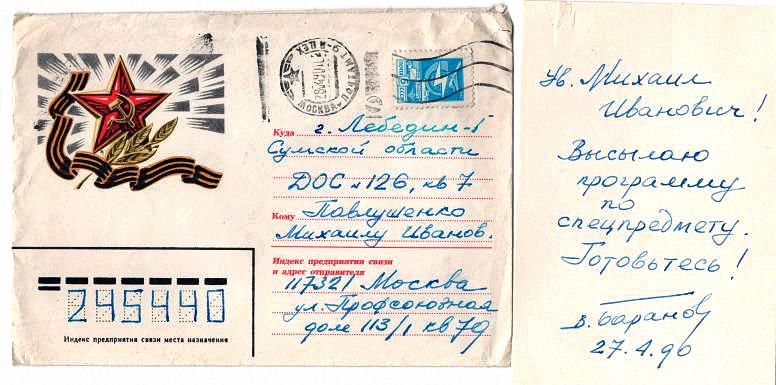 Куда г. Лебедин-1
Сумской области
ДОС № 126, кв 7
Кому Павлушенко
Михаилу Иванов.
Индекс предприятия связи
и адрес отправителя
117321 Москва
ул. Профсоюзная
дом 113/1 кв
245440
Индекс предприятия связи места назначения
Ув. Михаил
Иванович!
Высылаю
программу
по
спецпредмету.
Готовьтесь!
В. Баранов
27.4.90